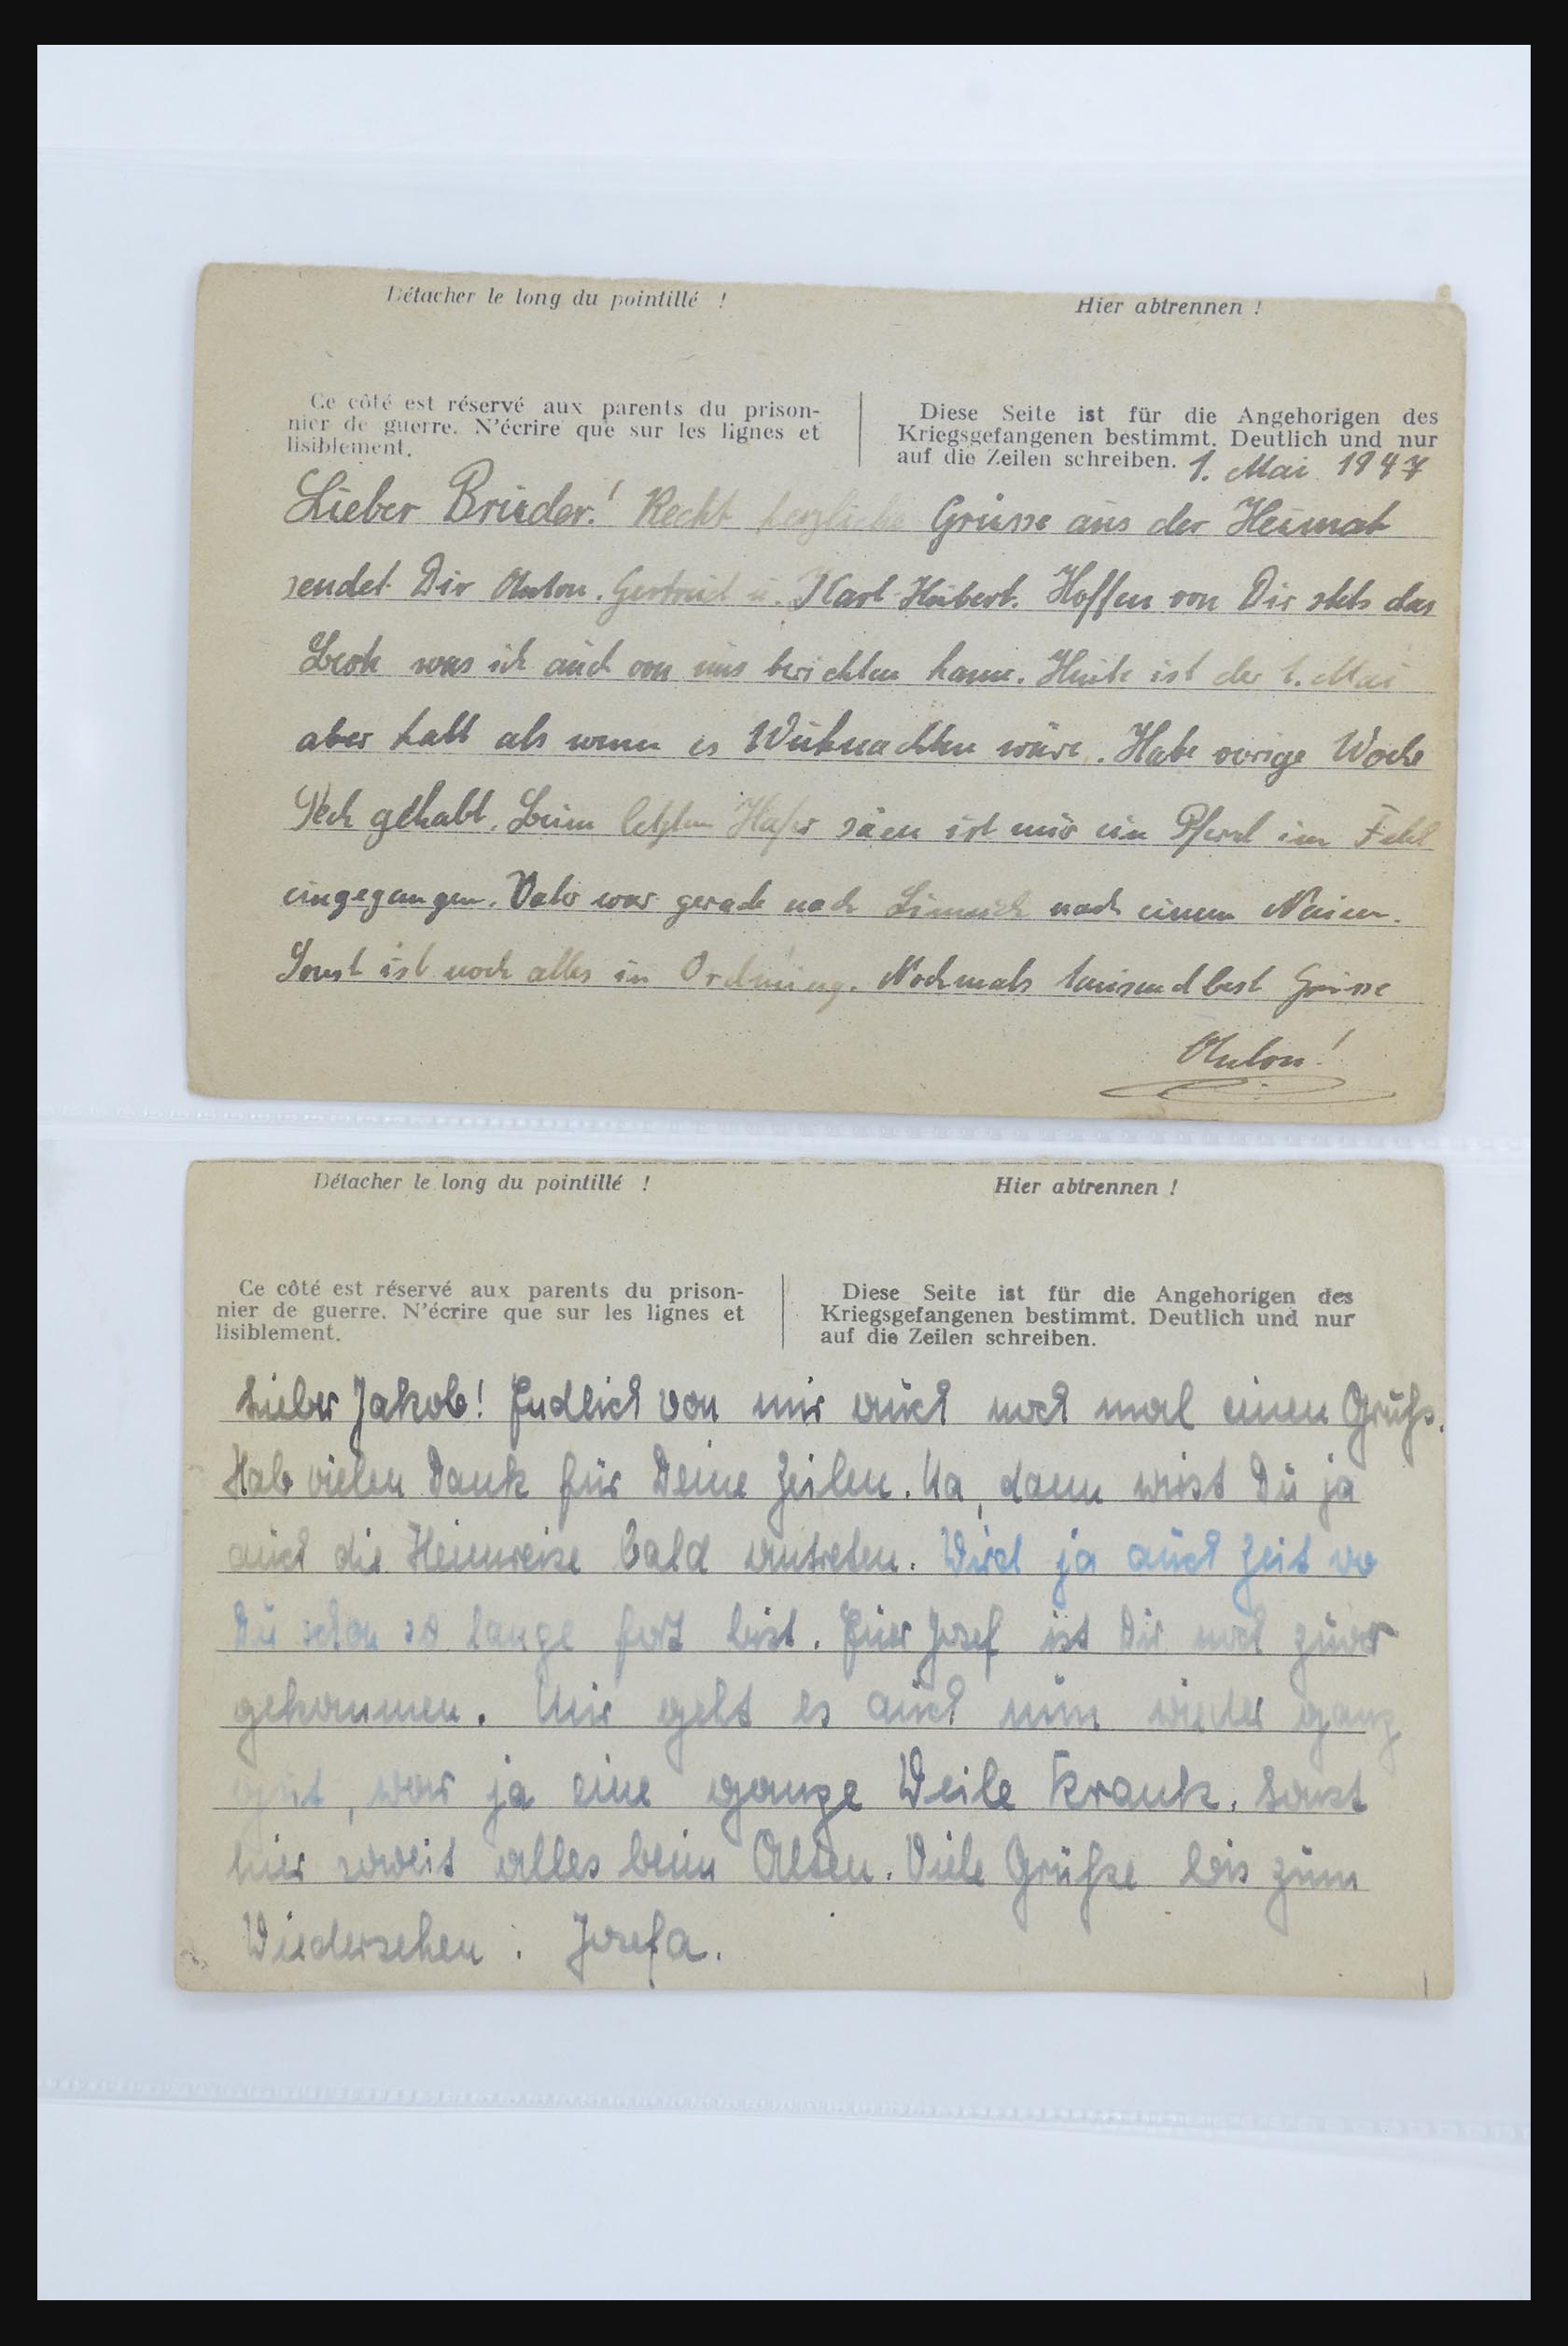 Détacher le long du pointillé !
Hier abtrennen !
Ce côté est réservé aux parents du prison-
nier de guerre. N'écrire que sur les lignes et
lisiblement.
Diese Seite ist für die Angehorigen des
Kriegsgefangenen bestimmt. Deutlich und nur
auf die Zeilen schreiben.
1. Mai 1947
Lieber Bruder! Recht herzliche Grüsse aus der Heimat
sendet Dir Anton. Gertrud u. Karl Hubert. Hoffen von Dir stets das
Beste was ich auch von uns berichten kann. Heute ist der 1. Mai
aber kalt als wenn es Weihnachten wäre. Habe vorige Woche
Pech gehabt. Beim letzten Hafer säen ist mir ein Pferd im Feld
eingegangen. Vater war gerade nach Linnich nach einem Neuen.
Sonst ist noch alles in Ordnung. Nochmals tausend best Grüsse
Anton!
Détacher le long du pointillé !
Hier abtrennen !
Ce côté est réservé aux parents du prison-
nier de guerre. N'écrire que sur les lignes et
lisiblement.
Diese Seite ist für die Angehorigen des
Kriegsgefangenen bestimmt. Deutlich und nur
auf die Zeilen schreiben.
Lieber Jakob! Endlich von mir auch noch mal einen Gruß.
Hab vielen Dank für Deine Zeilen. Na, dann wirst Du ja
auch die Heimreise bald antreten. Wird ja auch Zeit wo
Du schon so lange fort bist. Euer Josef ist Dir noch zuvor
gekommen. Mir geht es auch nun wieder ganz
gut, war ja eine ganze Weile krank. Sonst
hier soweit alles beim Alten. Viele Grüße bis zum
Wiedersehen : Josefa.